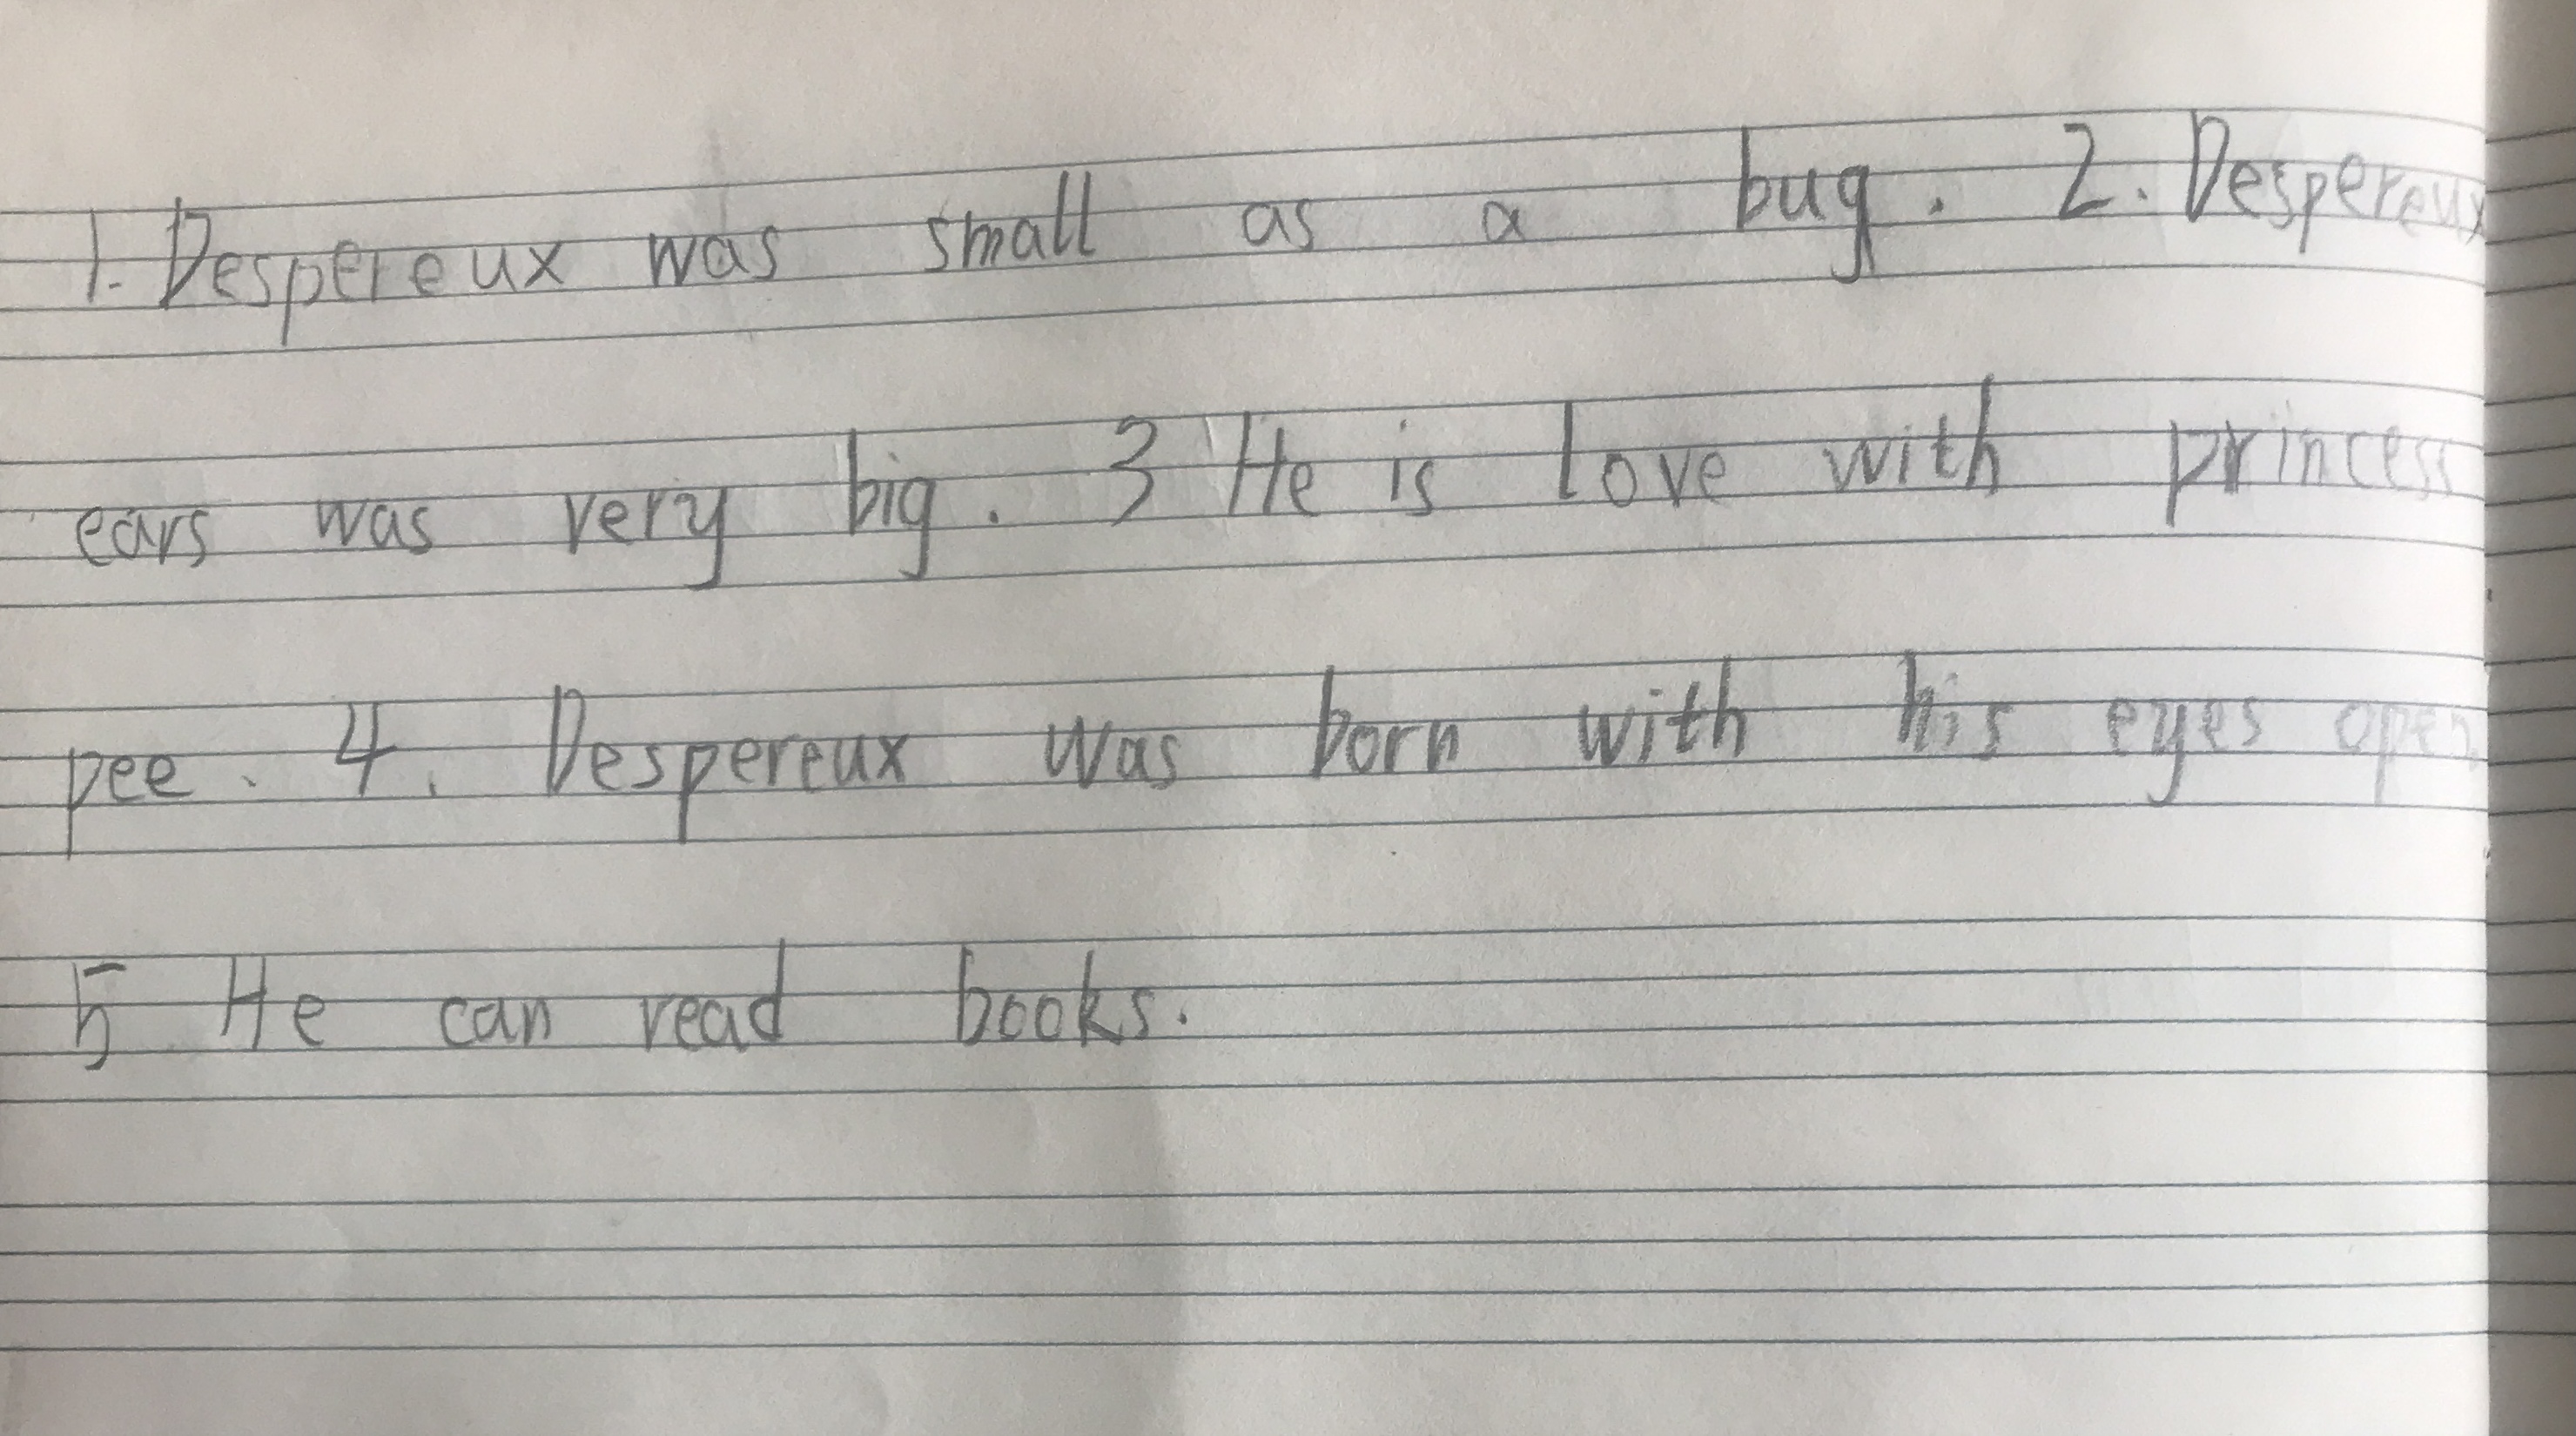 1. Despereux was small as a bug. 2. Despereux
ears was very big. 3 He is love with princess
pee. 4. Despereux was born with his eyes open.
5 He can read books.